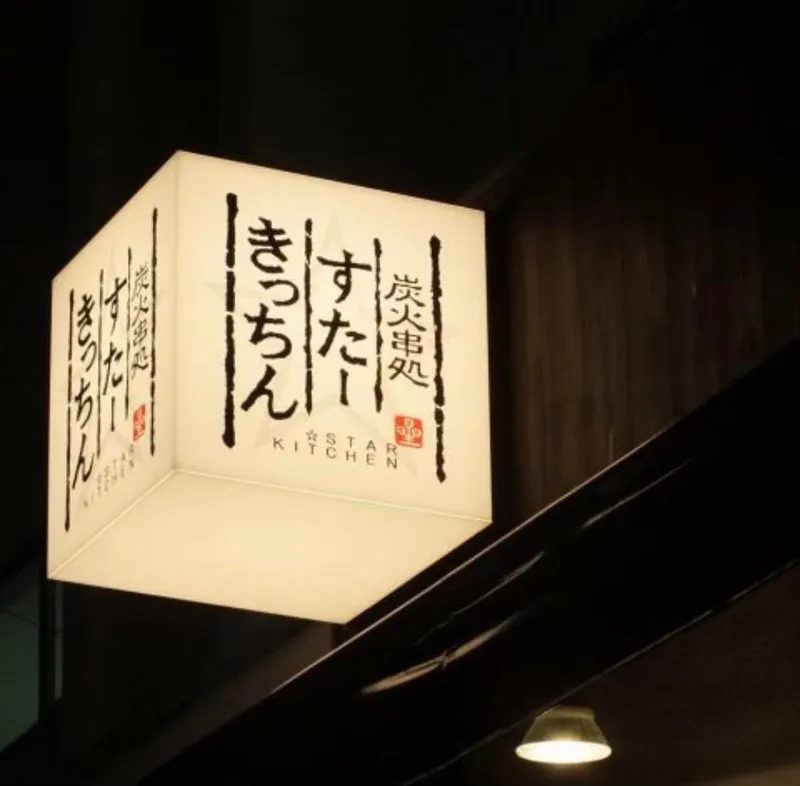 炭火串処
すたー
きっちん
☆STAR
KITCHEN
炭火串処
すたー
きっちん
☆STAR
KITCHEN